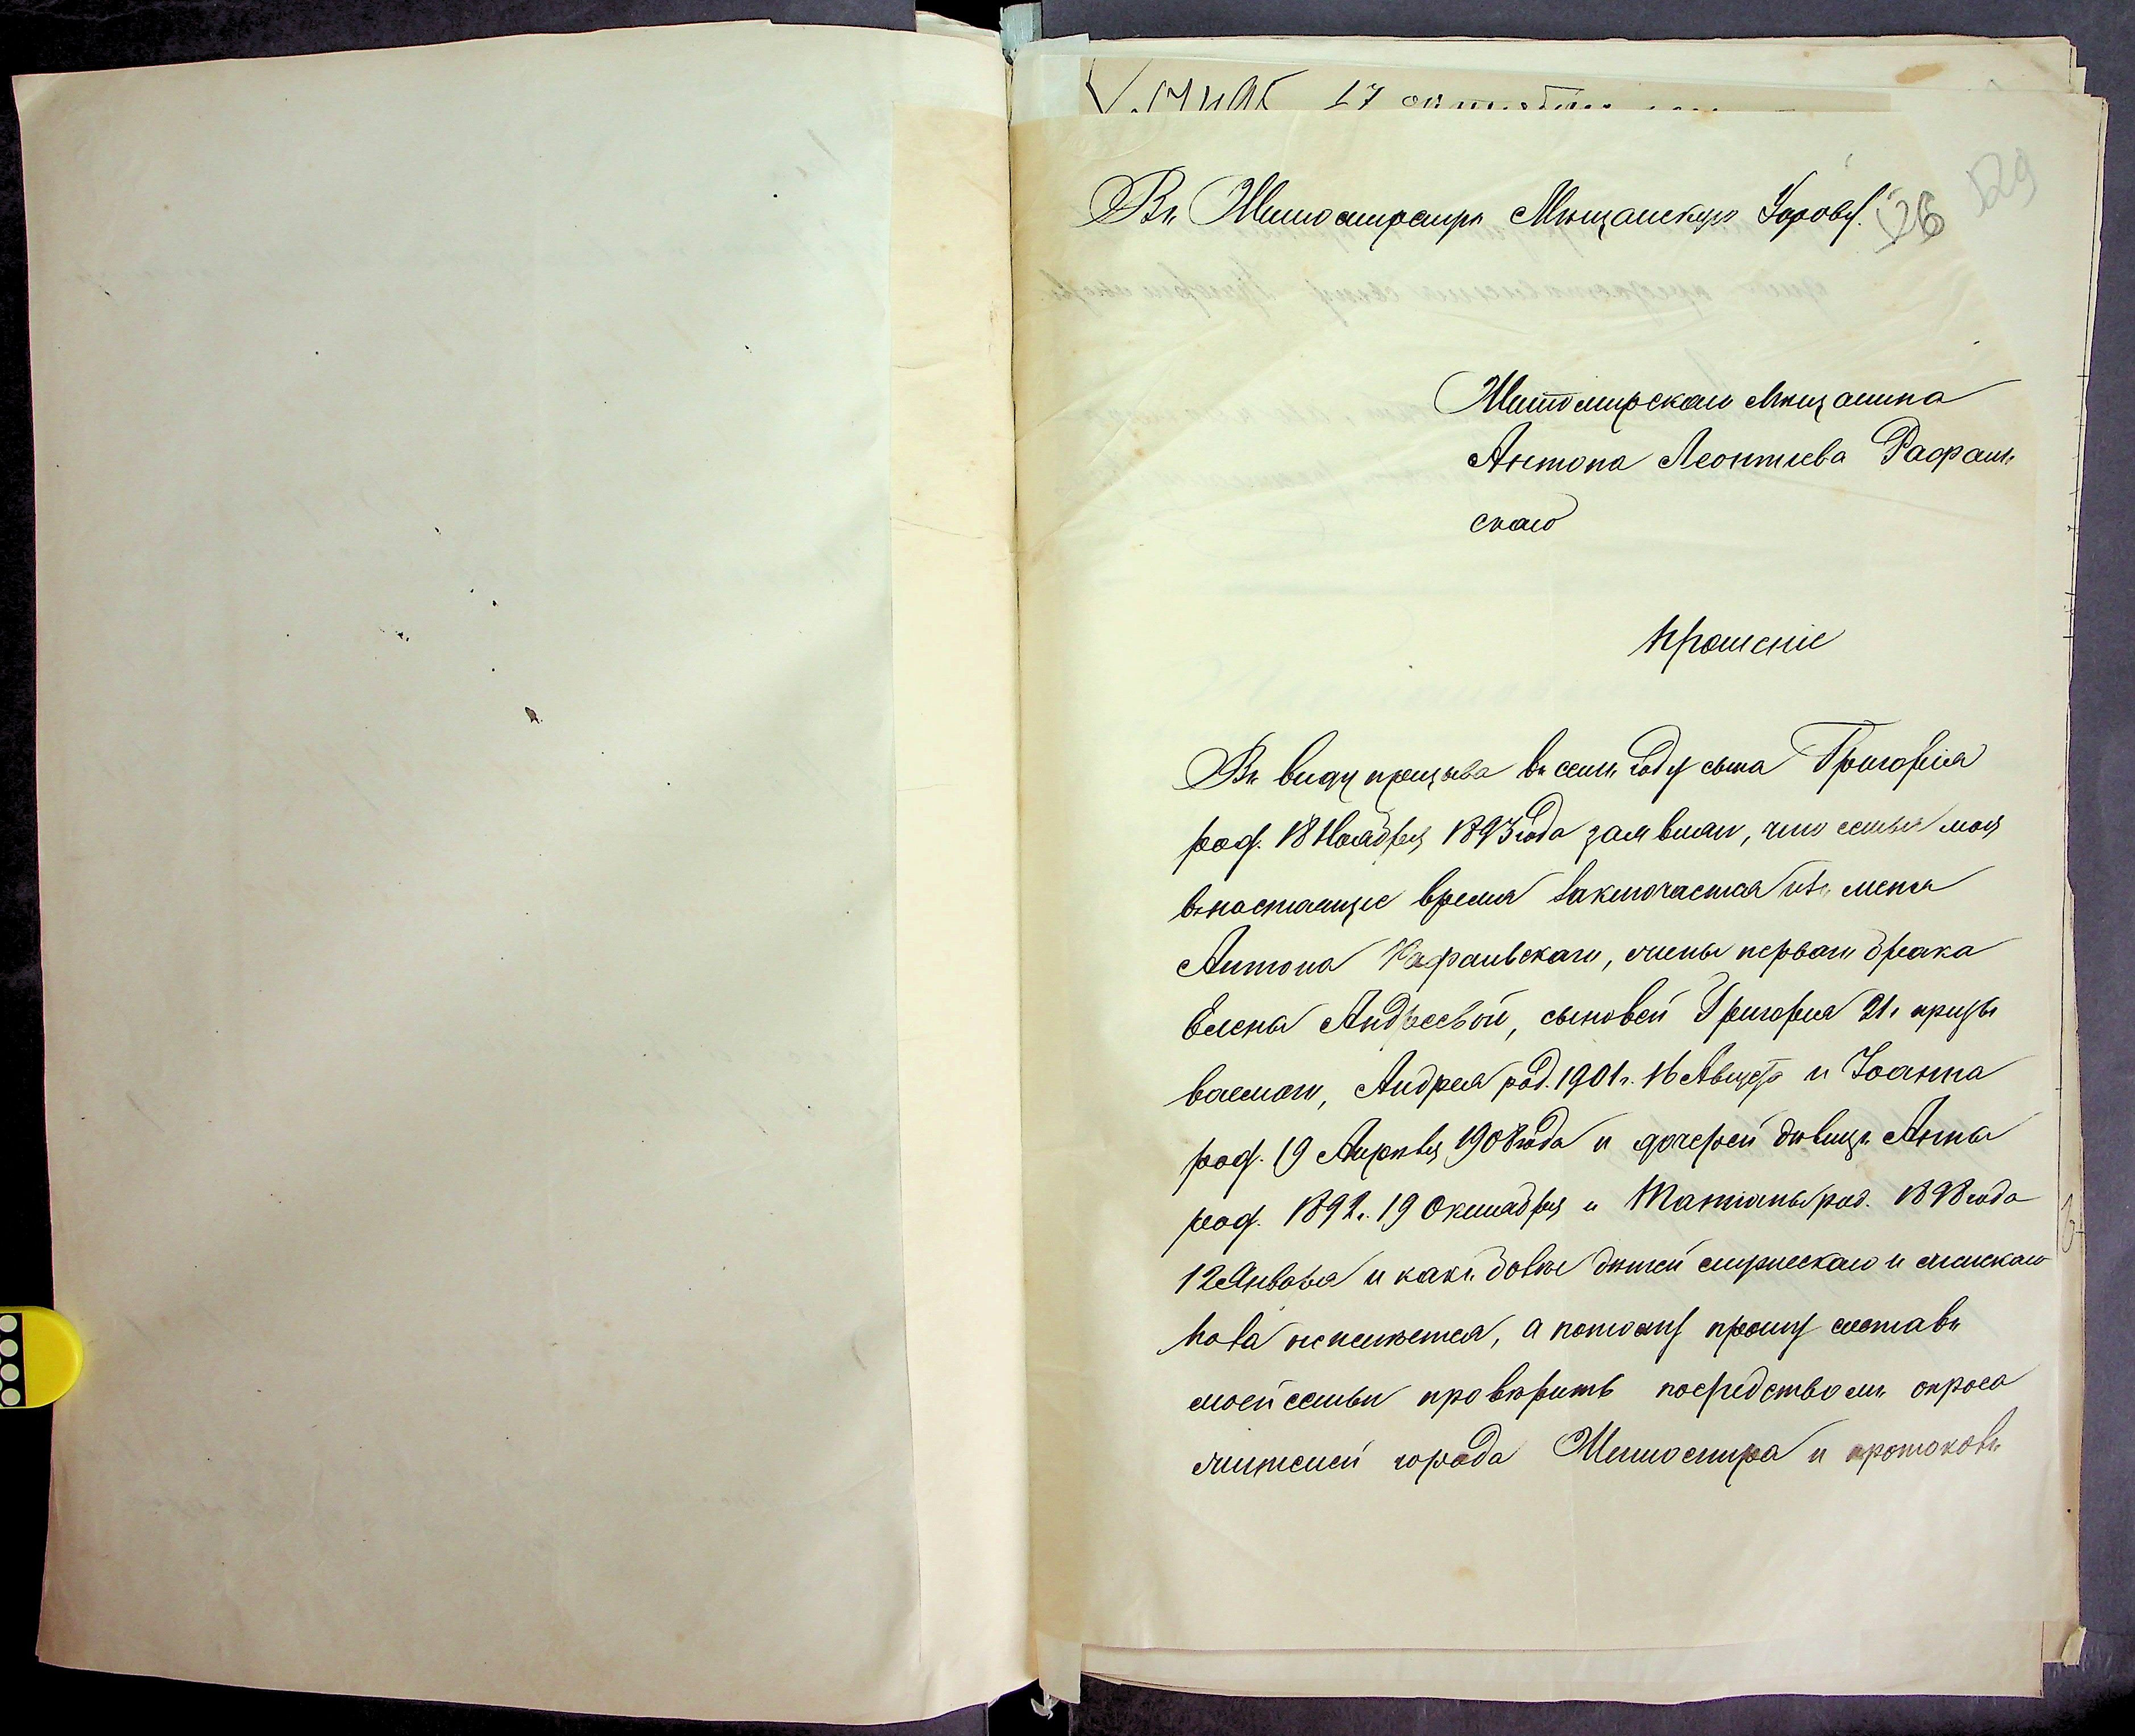 17 октября
Въ Житомирскую Мѣщанскую Управу.
26
129
Житомирскаго мѣщанина
Антона Леонтіева Рафаль
скаго
Прошеніе
Въ виду призыва въ семъ году сына Григорія
род. 18 Ноября 1893 года заявляю, что семья моя
въ настоящее время заключается изъ меня
Антона Рафальскаго, жены перваго брака
Елены Андреевой, сыновей Григорія 21 г. призы
ваемаго, Андрея род. 1901 г. 16 Августа и Іоанна
род. 19 Апрѣля 1908 года и дочерей дѣвицъ Анны
род. 1892 г. 19 Октября и Татіаны род. 1898 года
12 Января и какъ болѣе дѣтей мужескаго и женскаго
пола не имѣется, а потому прошу составъ
моей семьи провѣрить посредствомъ опроса
жителей города Житомира и протоколъ